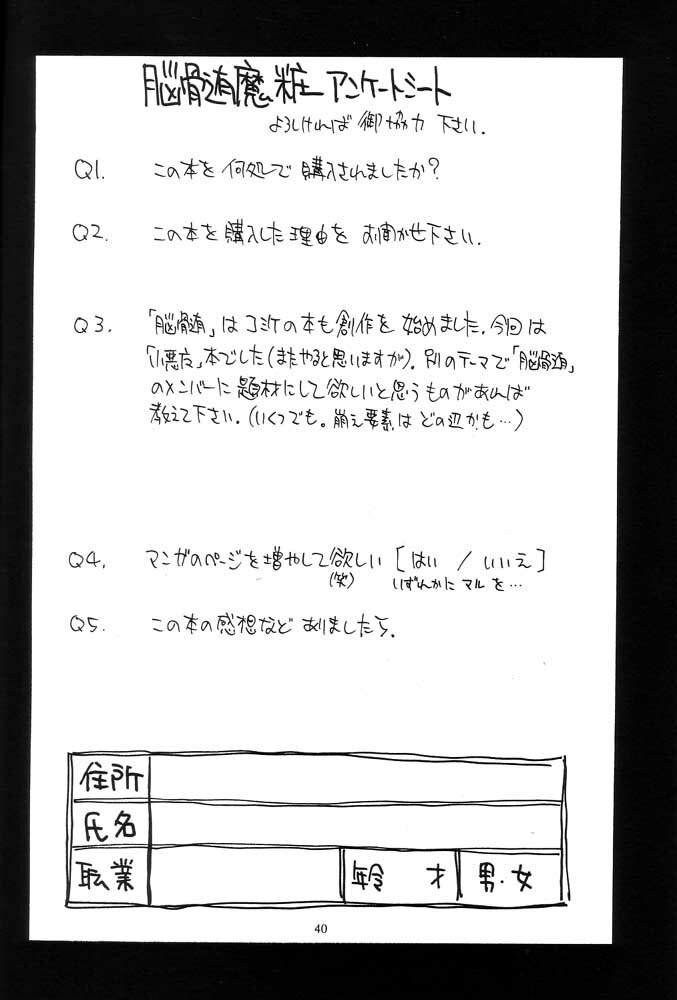 脳骨髄魔粧 アンケートシート
よろしければ 御協力 下さい.
Q1. この本を何処で購入されましたか?
Q2. この本を購入した理由を お聞かせ下さい.
Q3. 「脳骨髄」はコミケの本も創作を始めました. 今回は
「小悪魔」本でした(またやると思いますが). 別のテーマで「脳骨髄」
のメンバーに題材にして欲しいと思うものがあれば
教えて下さい. (いくつでも。崩え要素はどの辺かも…)
Q4. マンガのページを増やして欲しい [はい / いいえ]
(笑) いずれかにマルを…
Q5. この本の感想など ありましたら.
住所
氏名
職業 年令 才 男・女
40